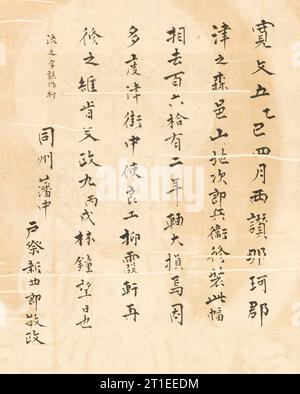 寛文五乙巳四月西讃那珂郡
津之森邑山地次郎兵衛修装此幅
相去百六拾有二年軸大損焉因
多度津街中使良工柳霞軒再
修之維旹文政九丙戌林鐘望日也
之字誤作
同州藩中
戸祭新郎敬政
2T1EEDM